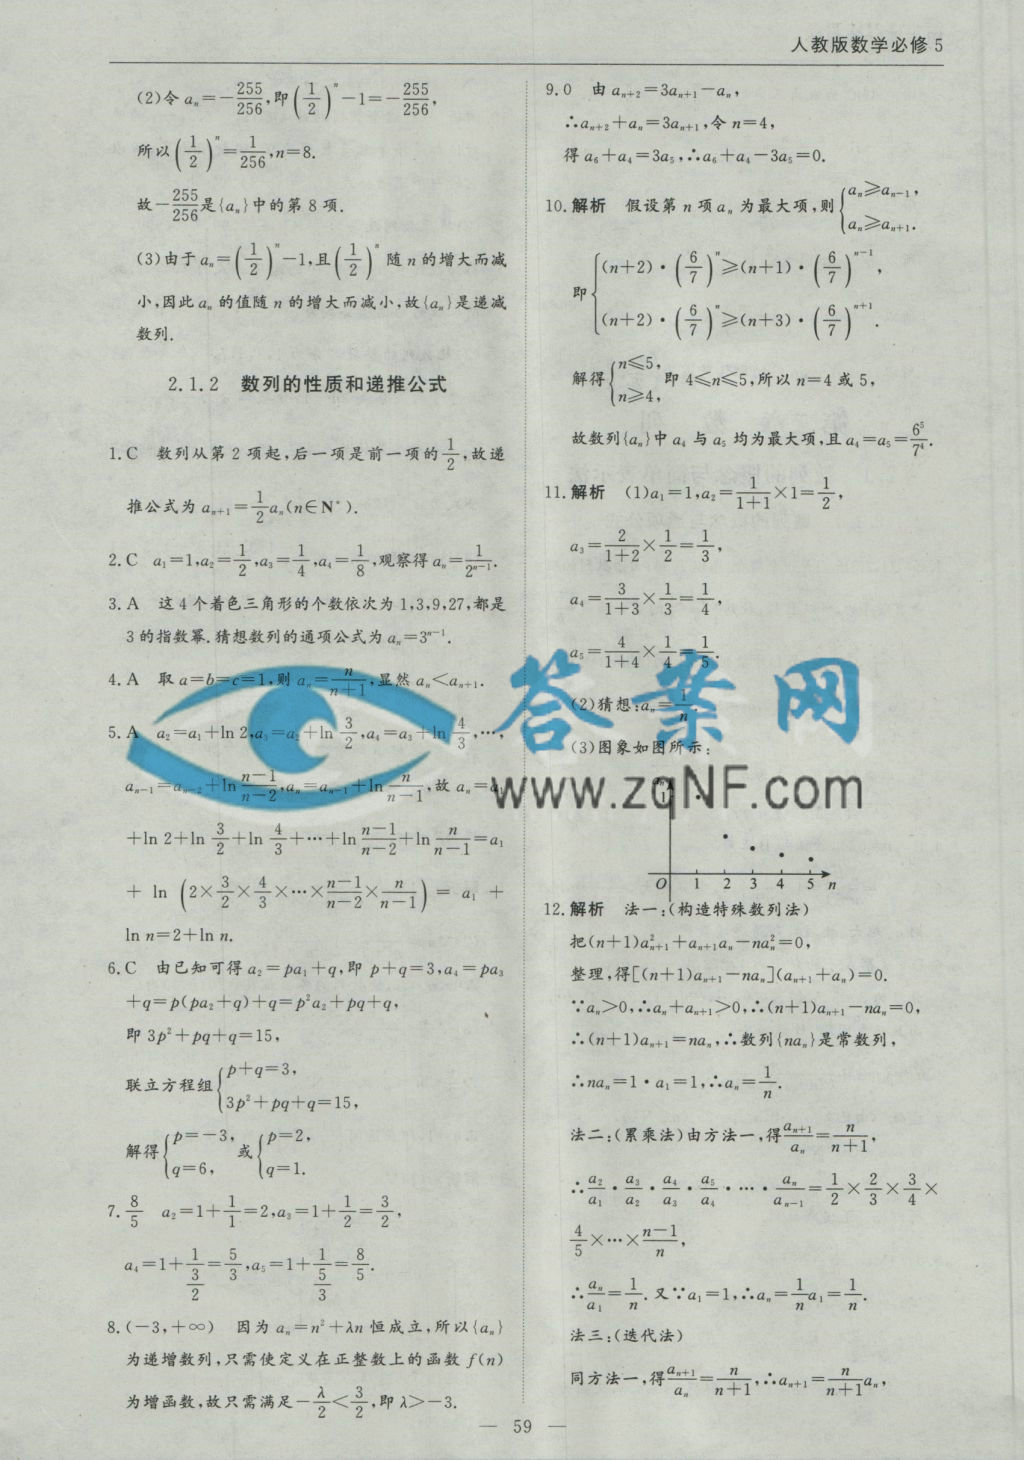 人教版数学必修 5
(2)令 aₙ=-255/256,即(1/2)ⁿ-1=-255/256,
所以(1/2)ⁿ=1/256,n=8.
故-255/256是{aₙ}中的第 8 项.
(3)由于 aₙ=(1/2)ⁿ-1,且(1/2)ⁿ 随 n 的增大而减
小,因此 aₙ 的值随 n 的增大而减小,故{aₙ}是递减
数列.
2.1.2 数列的性质和递推公式
1.C 数列从第 2 项起,后一项是前一项的1/2,故递
推公式为 aₙ₊₁=1/2aₙ(n∈N*).
2.C a₁=1,a₂=1/2,a₃=1/4,a₄=1/8,观察得 aₙ=1/2ⁿ⁻¹.
3.A 这 4 个着色三角形的个数依次为 1,3,9,27,都是
3 的指数幂.猜想数列的通项公式为 aₙ=3ⁿ⁻¹.
4.A 取 a=b=c=1,则 aₙ=n/(n+1),显然 aₙ<aₙ₊₁.
5.A a₂=a₁+ln 2,a₃=a₂+ln 3/2,a₄=a₃+ln 4/3,…,
aₙ₋₁=aₙ₋₂+ln (n-1)/(n-2),aₙ=aₙ₋₁+ln n/(n-1),故 aₙ=a₁
+ln 2+ln 3/2+ln 4/3+…+ln (n-1)/(n-2)+ln n/(n-1)=a₁
+ ln (2×3/2×4/3×…×(n-1)/(n-2)×n/(n-1)) = a₁ +
ln n=2+ln n.
6.C 由已知可得 a₂=pa₁+q,即 p+q=3,a₄=pa₃
+q=p(pa₂+q)+q=p²a₂+pq+q,
即 3p²+pq+q=15,
联立方程组{p+q=3, 3p²+pq+q=15,
解得{p=-3, q=6, 或{p=2, q=1.
7. 8/5 a₂=1+1/1=2,a₃=1+1/2=3/2,
a₄=1+1/(3/2)=5/3,a₅=1+1/(5/3)=8/5.
8.(-3,+∞) 因为 aₙ=n²+λn 恒成立,所以{aₙ}
为递增数列,只需使定义在正整数上的函数 f(n)
为增函数,故只需满足-λ/2<3/2,即 λ>-3.
9.0 由 aₙ₊₂=3aₙ₊₁-aₙ,
∴aₙ₊₂+aₙ=3aₙ₊₁,令 n=4,
得 a₆+a₄=3a₅,∴a₆+a₄-3a₅=0.
10.解析 假设第 n 项 aₙ 为最大项,则{aₙ≥aₙ₋₁, aₙ≥aₙ₊₁.
即{(n+2)·(6/7)ⁿ≥(n+1)·(6/7)ⁿ⁻¹,
(n+2)·(6/7)ⁿ≥(n+3)·(6/7)ⁿ⁺¹.
解得{n≤5, n≥4, 即 4≤n≤5,所以 n=4 或 5,
故数列{aₙ}中 a₄ 与 a₅ 均为最大项,且 a₄=a₅=6⁵/7⁴.
11.解析 (1)a₁=1,a₂=1/(1+1)×1=1/2,
a₃=2/(1+2)×1/2=1/3,
a₄=3/(1+3)×1/3=1/4,
a₅=4/(1+4)×1/4=1/5.
(2)猜想:aₙ=1/n.
(3)图象如图所示:
aₙ
1
O 1 2 3 4 5 n
12.解析 法一:(构造特殊数列法)
把(n+1)a²ₙ₊₁+aₙ₊₁aₙ-na²ₙ=0,
整理,得[(n+1)aₙ₊₁-naₙ](aₙ₊₁+aₙ)=0.
∵aₙ>0,∴aₙ+aₙ₊₁>0,∴(n+1)aₙ₊₁-naₙ=0,
∴(n+1)aₙ₊₁=naₙ,∴数列{naₙ}是常数列,
∴naₙ=1·a₁=1,∴aₙ=1/n.
法二:(累乘法)由方法一,得aₙ₊₁/aₙ=n/(n+1),
∴a₂/a₁·a₃/a₂·a₄/a₃·a₅/a₄·…·aₙ/aₙ₋₁=1/2×2/3×3/4×
4/5×…×(n-1)/n,
∴aₙ/a₁=1/n.又∵a₁=1,∴aₙ=1/n a₁=1/n.
法三:(迭代法)
同方法一,得aₙ₊₁/aₙ=n/(n+1),∴aₙ₊₁=n/(n+1)aₙ,
— 59 —
答案网
www.zqNF.com